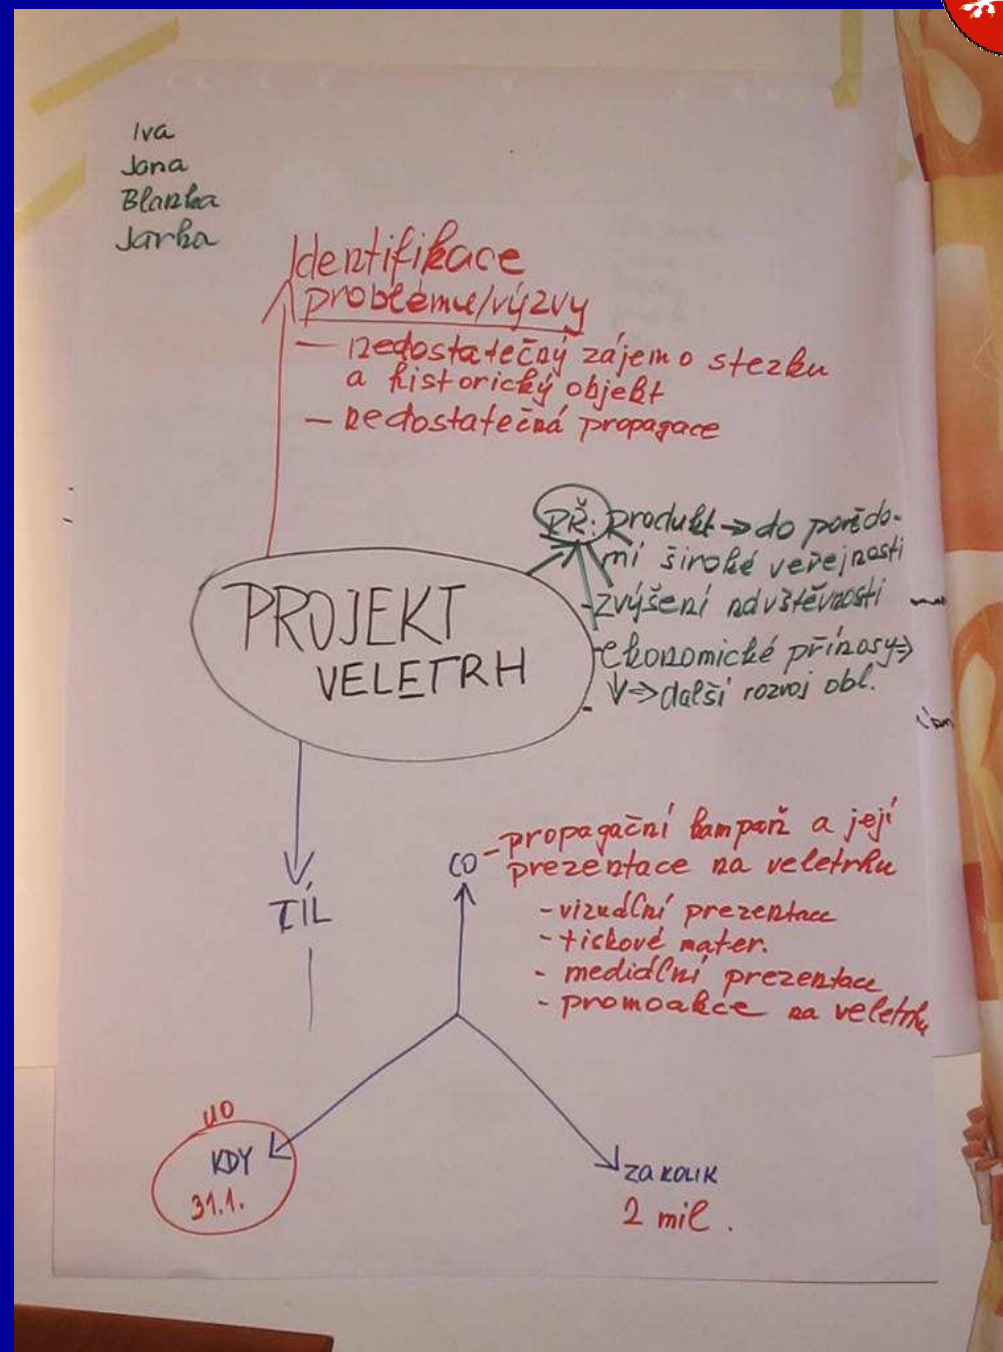 Iva
Jana
Blanka
Jarka
Identifikace
problému/výzvy
– nedostatečný zájem o stezku
a historický objekt
– nedostatečná propagace
PŘ: produkt → do porědo-
mí široké veřejnosti
- zvýšení návštěvnosti
- ekonomické přínosy ⇒
↓ ⇒ další rozvoj obl.
PROJEKT
VELETRH
CÍL
CO - propagační kampaň a její
prezentace na veletrhu
- vizuální prezentace
- tiskové mater.
- mediální prezentace
- promoakce na veletrhu
KDY
31.1.
ZA KOLIK
2 mil.